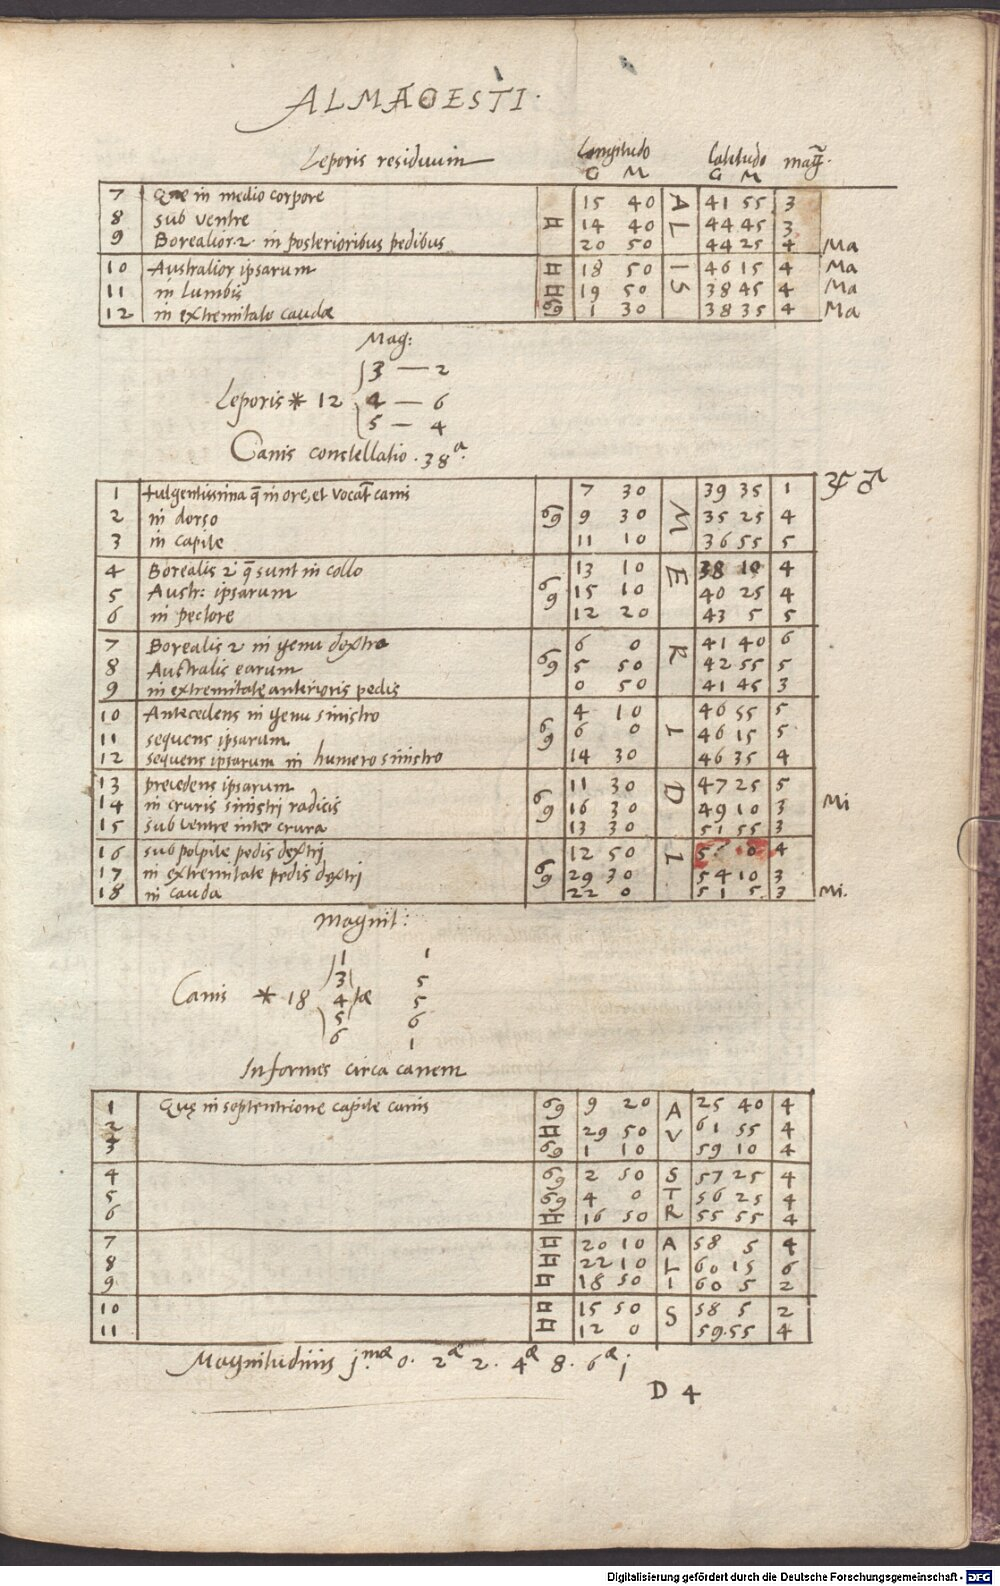 ALMAGESTI.
Leporis residuum Longitudo Latitudo mag.
G M G M
7 Quae in medio corpore ♊ 15 40 A 41 55 3
8 sub ventre 14 40 L 44 45 3
9 Borealior .2. in posterioribus pedibus 20 50 44 25 4 Ma
10 Australior ipsarum ♊ 18 50 I 46 15 4 Ma
11 in lumbis ♊ 19 50 S 38 45 4 Ma
12 in extremitate caudæ ♋ 1 30 38 35 4 Ma
Mag:
3 — 2
Leporis * 12 4 — 6
5 — 4
Canis constellatio . 38ª.
1 fulgentissima q̄ in ore, et vocat̄ canis 7 30 39 35 1 ♃ ♂
2 in dorso ♋ 9 30 M 35 25 4
3 in capite 11 10 36 55 5
4 Borealis 2 q̄ sunt in collo 13 10 E 38 10 4
5 Austr: ipsarum ♋ 15 10 40 25 4
6 in pectore 12 20 43 5 5
7 Borealis 2 in genu dextro 6 0 41 40 6
8 Australis earum ♋ 5 50 R 42 55 5
9 in extremitate anterioris pedis 0 50 41 45 3
10 Antecedens in genu sinistro 4 10 46 55 5
11 sequens ipsarum ♋ 6 0 I 46 15 5
12 sequens ipsarum in humero sinistro 14 30 46 35 4
13 precedens ipsarum 11 30 47 25 5
14 in cruris sinistri radicis ♋ 16 30 D 49 10 3 Mi
15 sub ventre inter crura 13 30 51 55 3
16 sub polpite pedis dextri 12 50 I 0 4
17 in extremitate pedis dextri ♋ 29 30 54 10 3
18 in cauda 22 0 51 5 3 Mi.
Magnit:
1 1
3 5
Canis * 18 4 æ 5
5 6
6 1
Informes circa canem
1 Quę in septentrione capite canis ♋ 9 20 A 25 40 4
2 ♊ 29 50 V 61 55 4
3 ♋ 1 10 59 10 4
4 ♋ 2 50 S 57 25 4
5 ♋ 4 0 T 56 25 4
6 ♊ 16 50 R 55 55 4
7 ♊ 20 10 A 58 5 4
8 ♊ 22 10 L 60 15 6
9 ♊ 18 50 I 60 5 2
10 ♊ 15 50 S 58 5 2
11 ♊ 12 0 59.55 4
Magnitudinis j.mæ 0. 2æ 2. 4æ 8. 6æ j
D 4
Digitalisierung gefördert durch die Deutsche Forschungsgemeinschaft - DFG